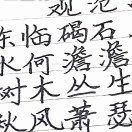 观沧
东临碣石
水何澹澹
树木丛生
秋风萧瑟